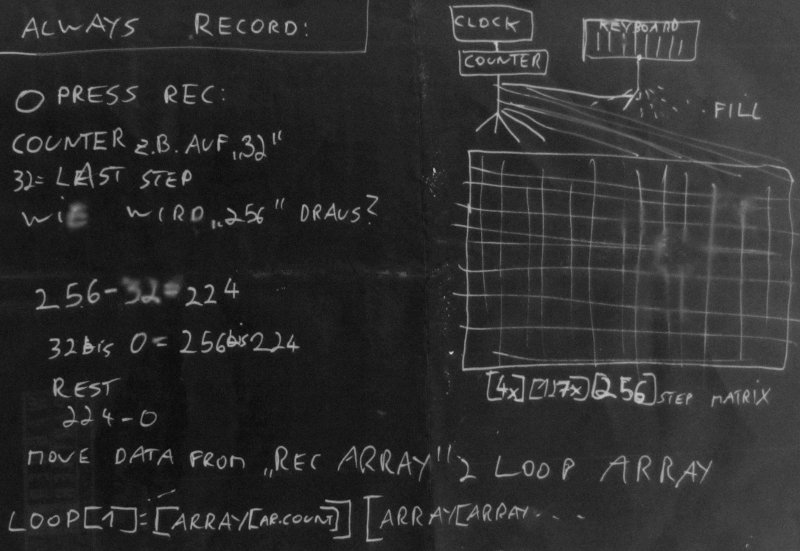 ALWAYS RECORD:
O PRESS REC:
COUNTER z.B. AUF „32"
32= LAST STEP
WIE WIRD „256" DRAUS?
256-32=224
32bis 0=256bis224
REST
224-0
MOVE DATA FROM „REC ARRAY" 2 LOOP ARRAY
LOOP[1]=[ARRAY[AR.COUNT]] [ARRAY[ARRAY...
CLOCK
COUNTER
KEYBOARD
FILL
[4x][127x][256] STEP MATRIX